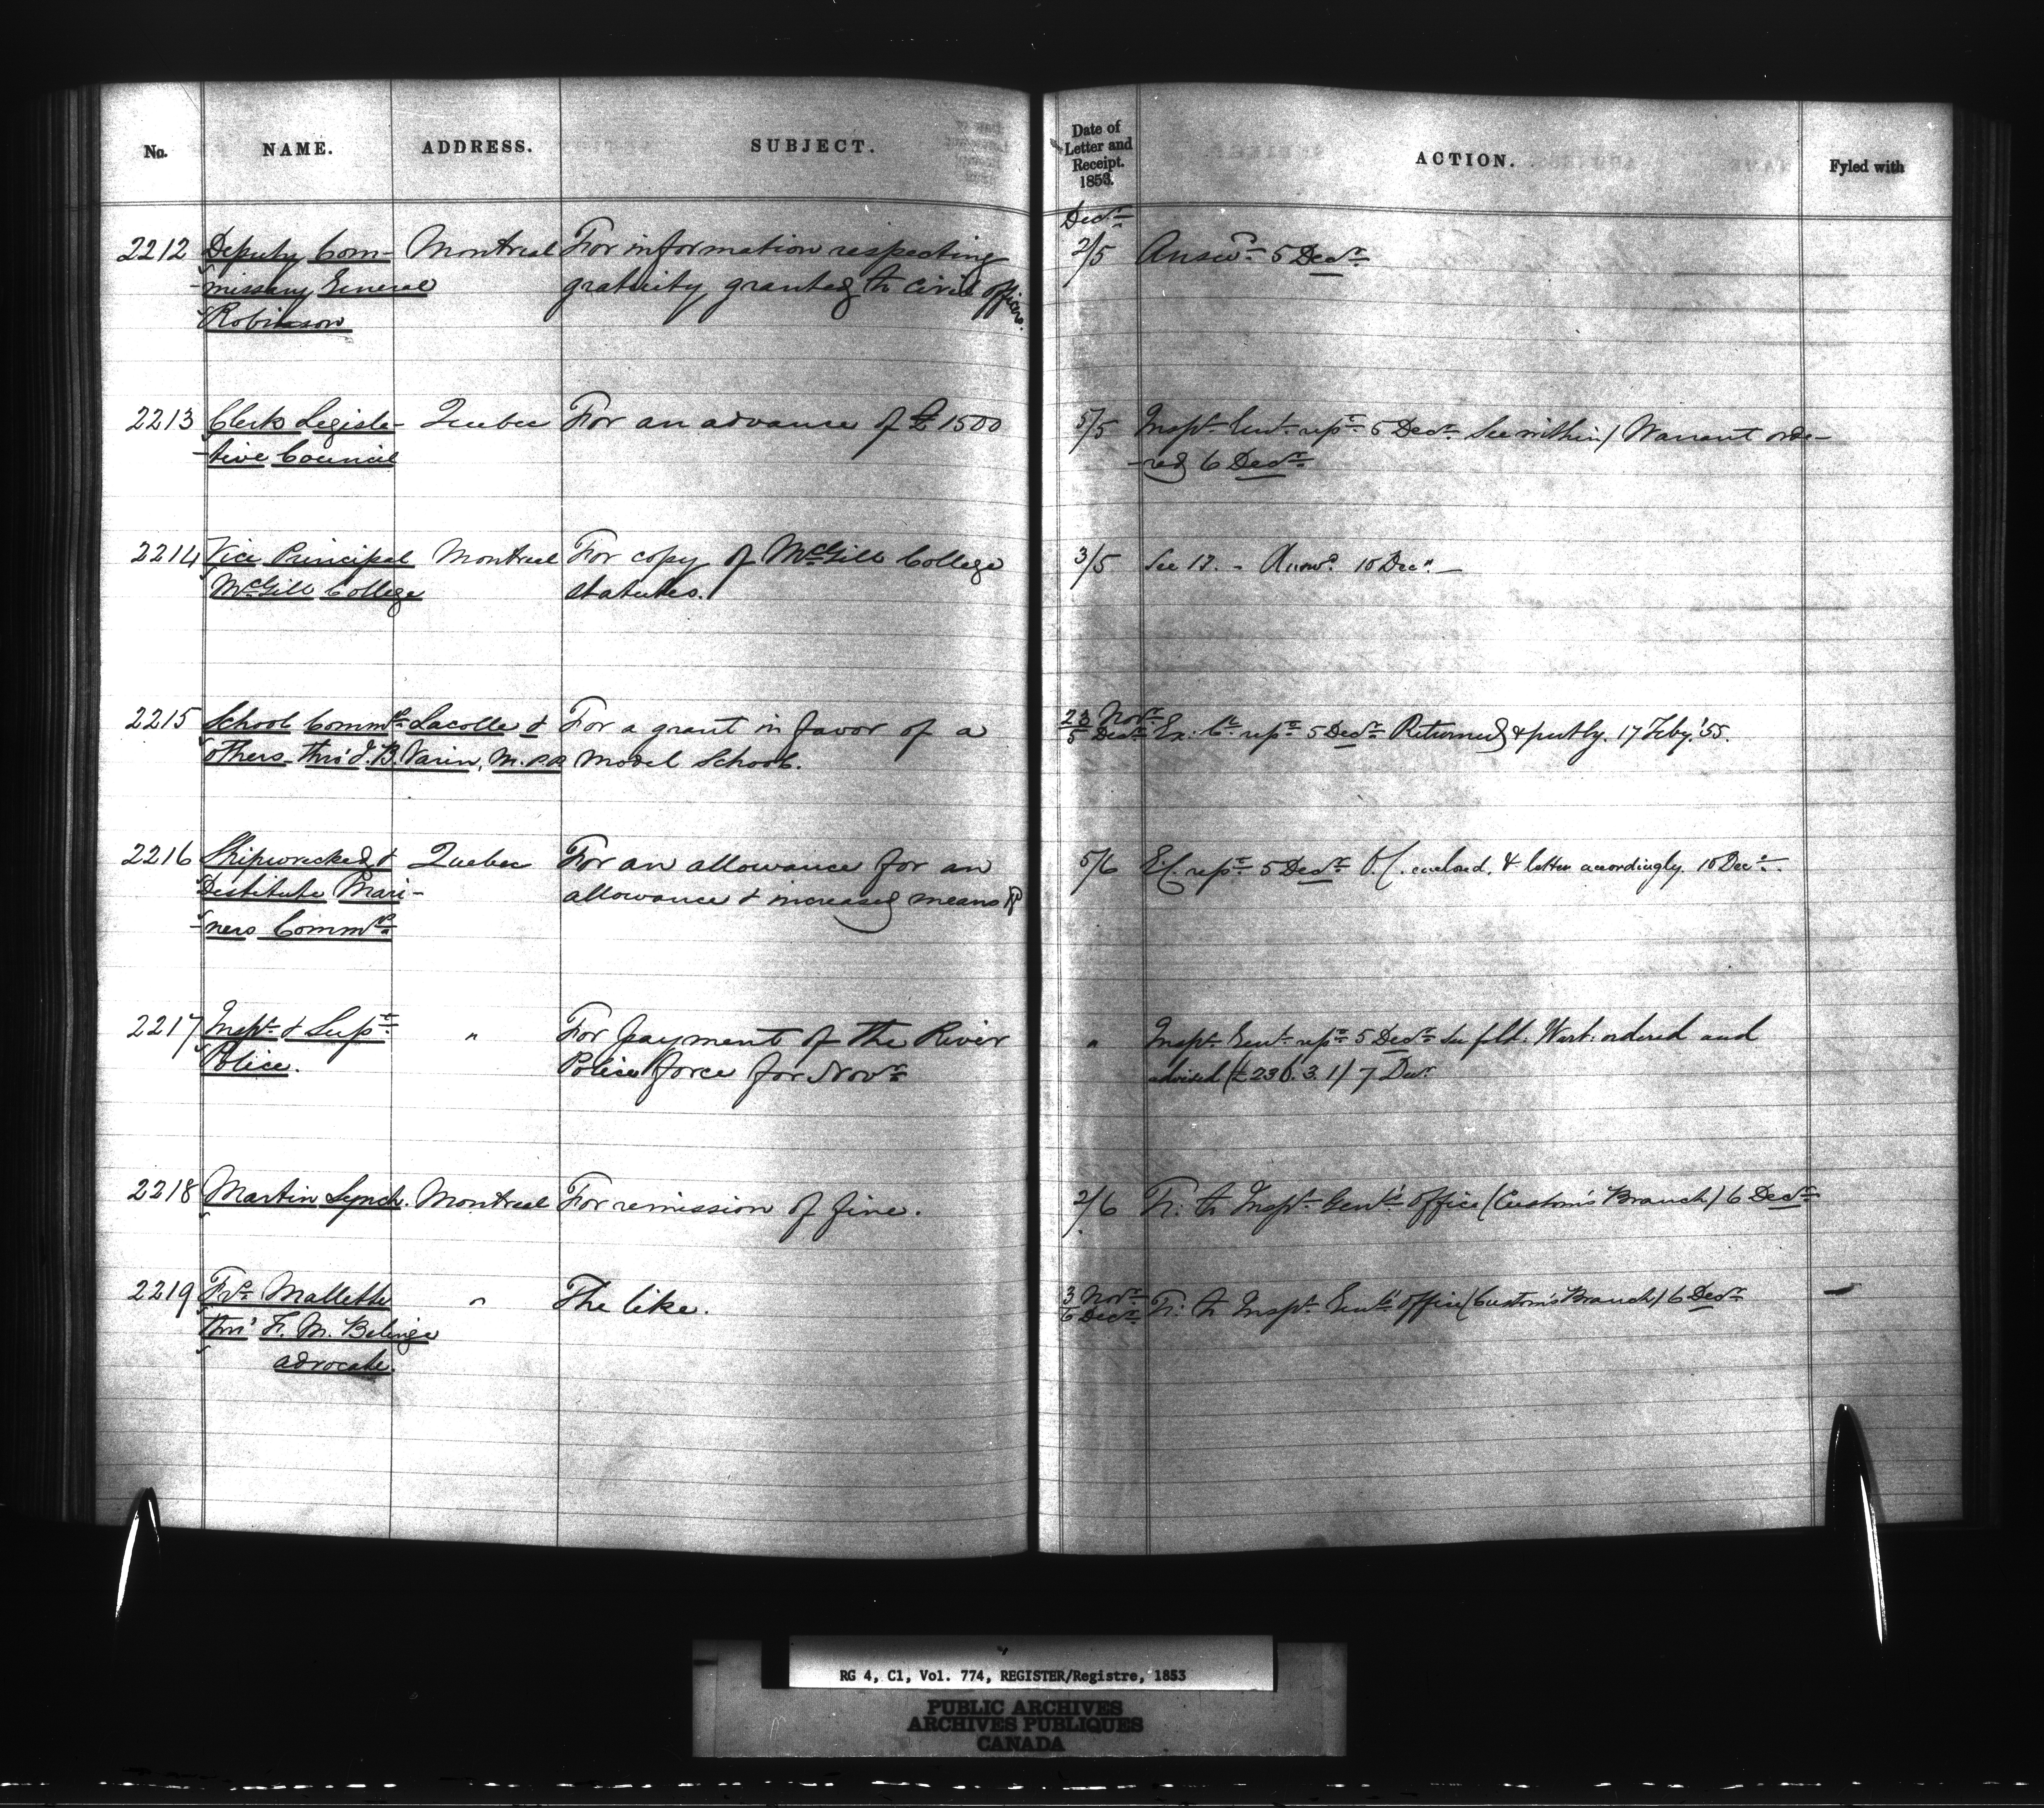 No. NAME. ADDRESS. SUBJECT. Date of Letter and Receipt. 1853. ACTION. Fyled with
Decr
2212 Deputy Com- Montreal For information respecting 2/5 Answd 5 Decr
-missary General gratuity granted to civil officers.
Robinson
2213 Clerk Legisla- Quebec For an advance of £1500 5/5 Inspr Genl repn 5 Decr See within/ Warrant orde-
-tive Council -red 6 Decr
2214 Vice Principal Montreal For copy of McGill College 3/5 See 12. - Answd 10 Decr. —
McGill College statutes.
2215 School Commrs Lacolle & For a grant in favor of a 23 Novr / 5 Decr Ex. Cl repn 5 Decr Returned & put by. 17 Feby. '55.
others thro' J. B. Varin, M.PP Model School.
2216 Shipwrecked & Quebec For an allowance for an 5/6 E.C. repn 5 Decr O.C. enclosd. & letter accordingly. 10 Decr.
Destitute Mari- allowance & increased means &c
-ners Commrs
2217 Inspr & Supt " For payment of the River " Inspr Genl repn 5 Decr See fold. Wart. ordered and
Police. Police force for Novr advised (£236. 3. 1) 7 Decr
2218 Martin Lynch. Montreal For remission of fine. 2/6 Tr. to Inspr Genl's office (Customs Branch) 6 Decr
2219 Frs Mallette " The like. 3 Novr / 6 Decr Tr. to Inspr Genl's office (Customs Branch) 6 Decr —
thro' F. M. Belinge
advocate.
RG 4, C1, Vol. 774, REGISTER/Registre, 1853
PUBLIC ARCHIVES
ARCHIVES PUBLIQUES
CANADA